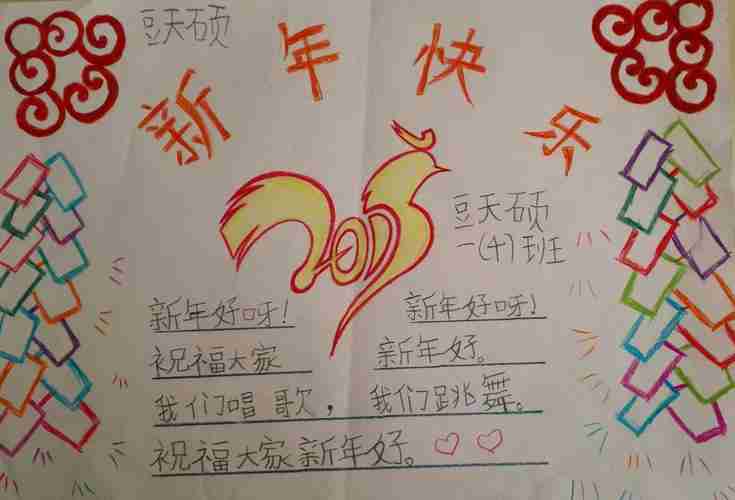 豆天硕
新年快乐
豆天硕
一(十)班
新年好呀! 新年好呀!
祝福大家 新年好。
我们唱歌, 我们跳舞。
祝福大家新年好。